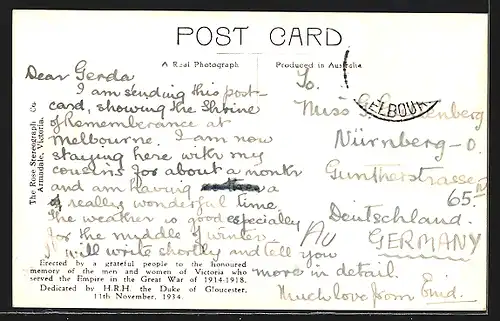 POST CARD
A Real Photograph
Produced in Australia
The Rose Stereograph Co
Armadale, Victoria.
Dear Gerda
I am sending this post-
card, showing the Shrine
of Rememberance at
Melbourne. I am now
staying here with my
cousins for about a month
and am having a
really wonderful time.
The weather is good especially
for the myddle of winter.
I will write shortly and tell you
more in detail.
Much love from Enid.
Erected by a grateful people to the honoured
memory of the men and women of Victoria who
served the Empire in the Great War of 1914-1918.
Dedicated by H.R.H. the Duke of Gloucester,
11th November, 1934.
To.
Miss G.
Nürnberg-O.
Guntherstrasse
65
Deutschland.
GERMANY
ELBOUR